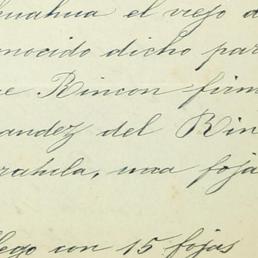 huahua el viejo d
onocido dicho par
e Rincon firm
andez del Rin
rahula, una foja
lego con 15 fojas